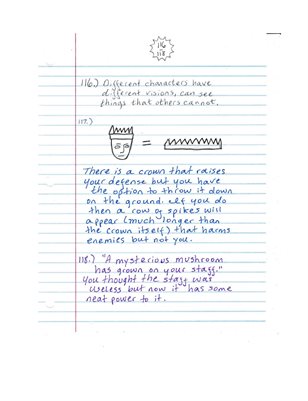 116
118
116.) Different characters have
different visions, can see
things that others cannot.
117.)
=
There is a crown that raises
your defense but you have
the option to throw it down
on the ground. If you do
then a row of spikes will
appear (much longer than
the crown itself) that harms
enemies but not you.
118.) "A mysterious mushroom
has grown on your staff."
You thought the staff was
useless but now it has some
neat power to it.